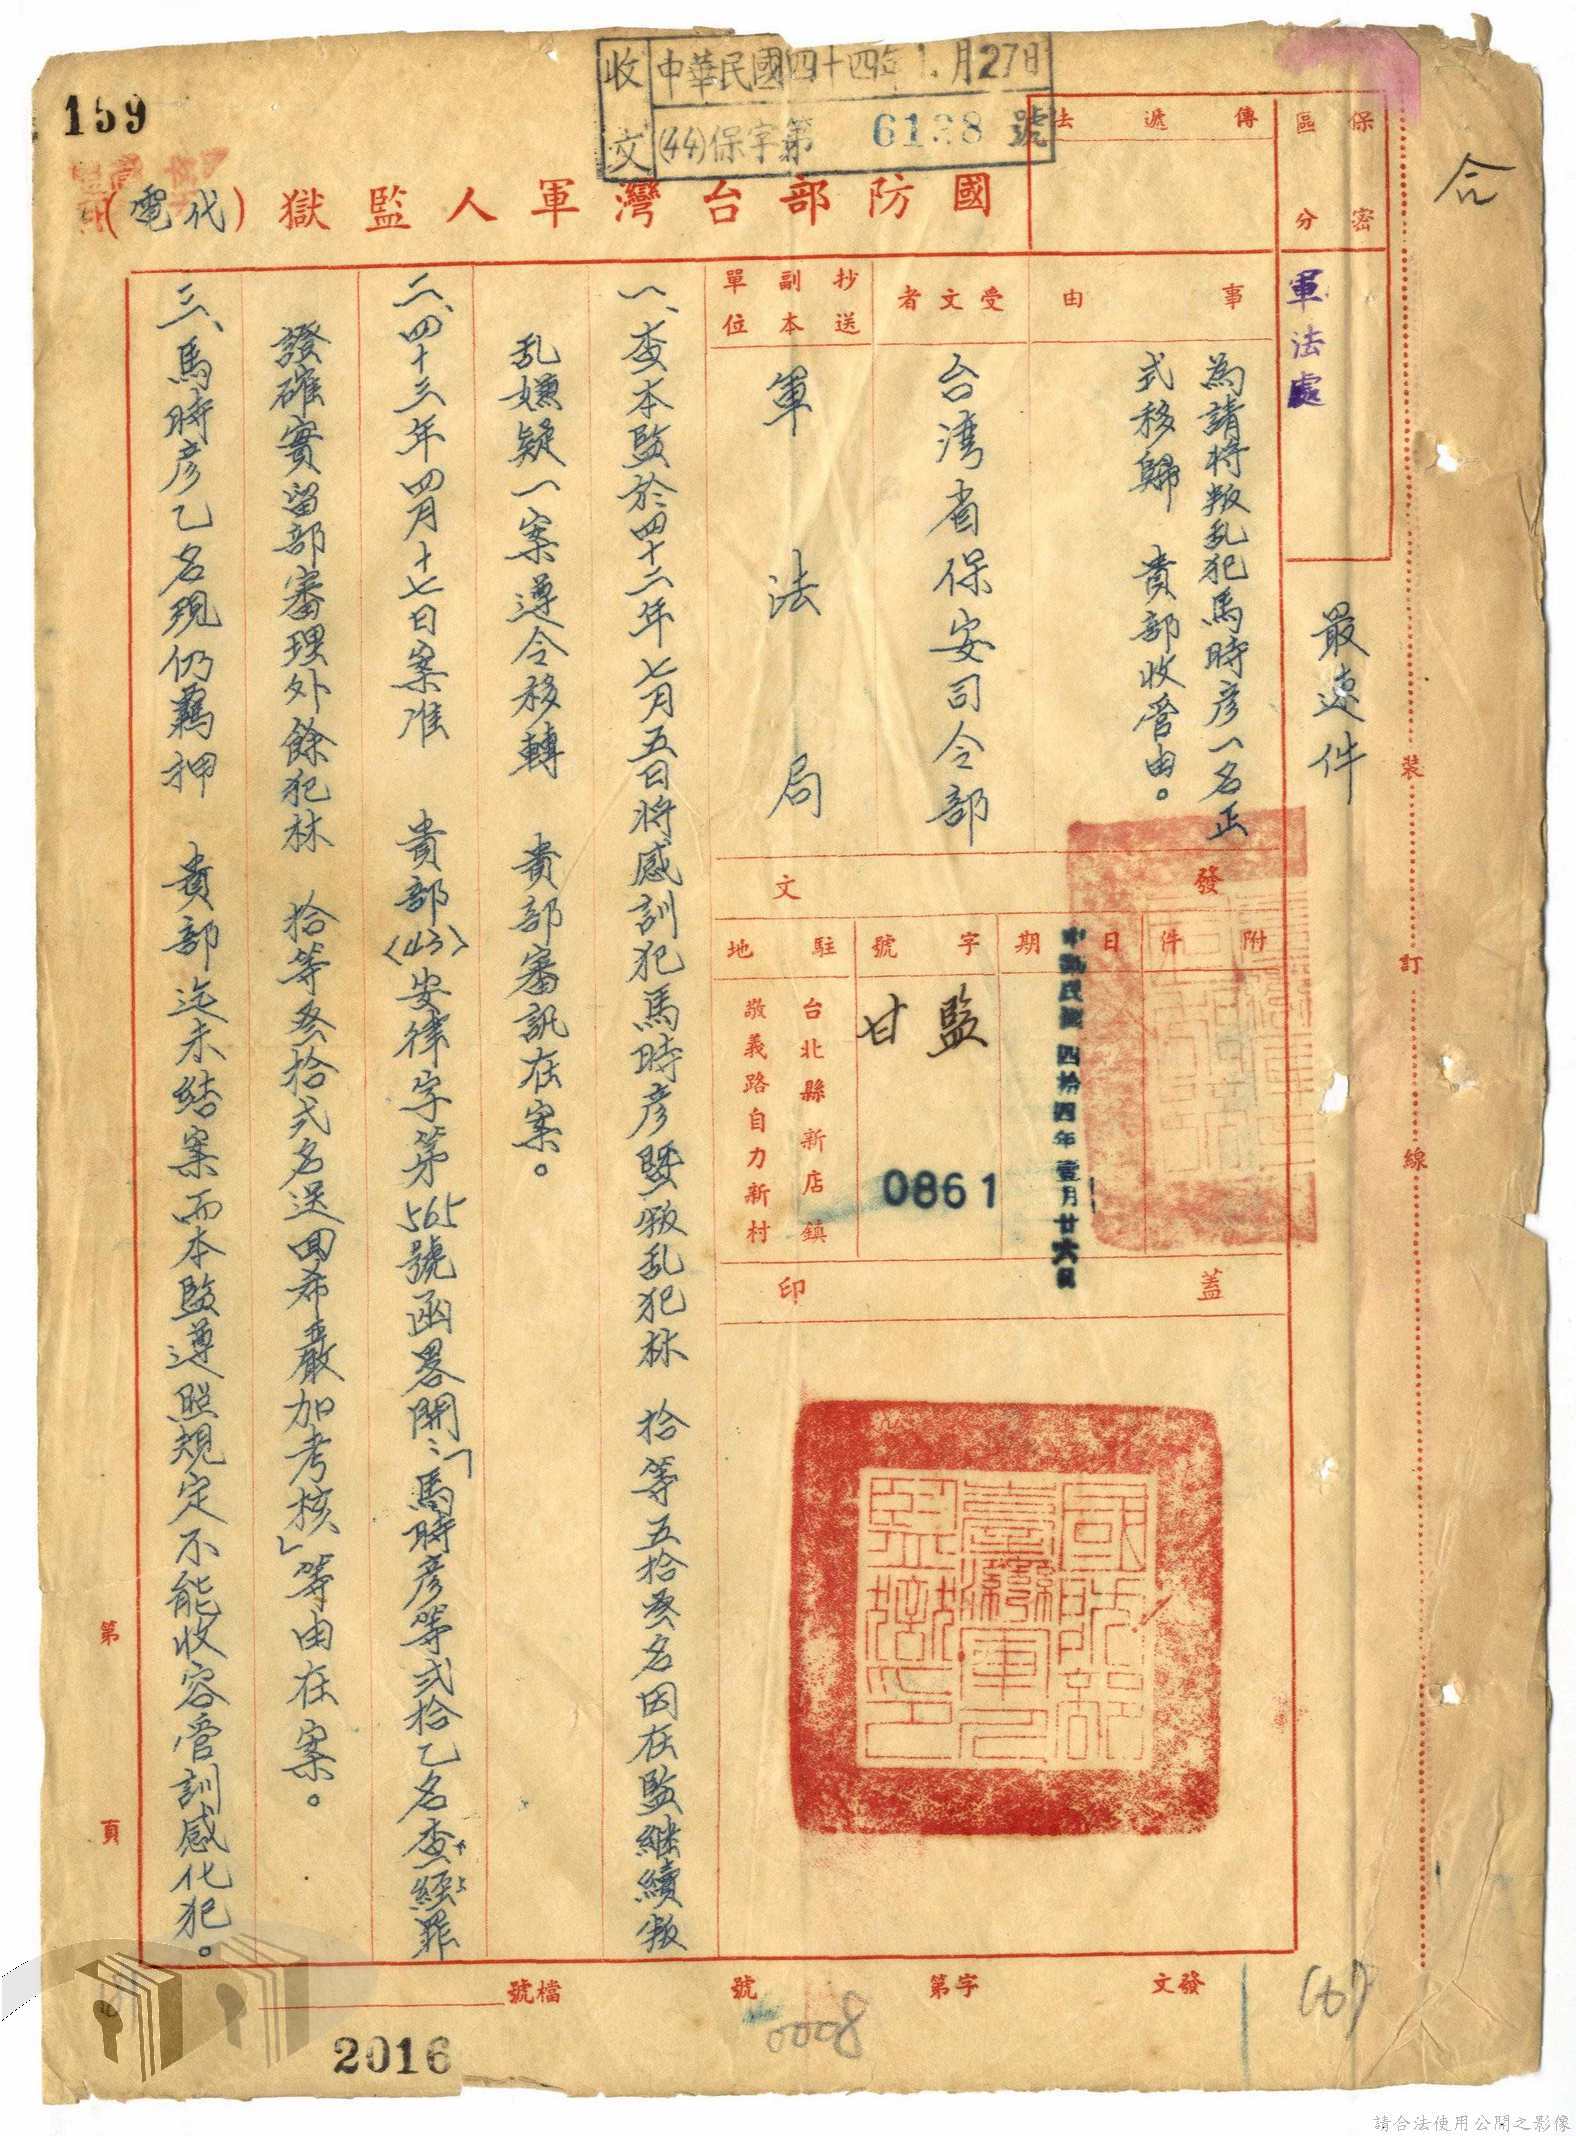 159
收文
中華民國四十四年1月27日
(44)保字第 6138 號
國防部台灣軍人監獄(代電)
保密
區分
傳遞法
軍法處
最速件
事由
為請將叛乱犯馬時彥一名正
式移歸 貴部收管由。
受文者
台湾省保安司令部
抄送
副本
單位
軍法局
發文
附件
日期
中華民國四拾四年壹月廿六日
字號
監甘
0861
駐地
台北縣新店鎮
敬義路自力新村
蓋印
國防部
臺灣軍人
監獄印
一、查本監於四十二年七月五日將感訓犯馬時彥暨叛乱犯林 拾等五拾叁名因在監継續叛
乱嫌疑一案遵令移轉 貴部審訊在案。
二、四十三年四月十七日案准 貴部(43)安律字第565號函畧開:「馬時彥等弍拾乙名查經罪
證確實留部審理外餘犯林 拾等叁拾弍名送回希嚴加考核」等由在案。
三、馬時彥乙名現仍羈押 貴部迄未結案而本監遵照規定不能收容管訓感化犯。
裝
訂
線
第 頁
發文 字第 號
檔號
0008
2016
請合法使用公開之影像